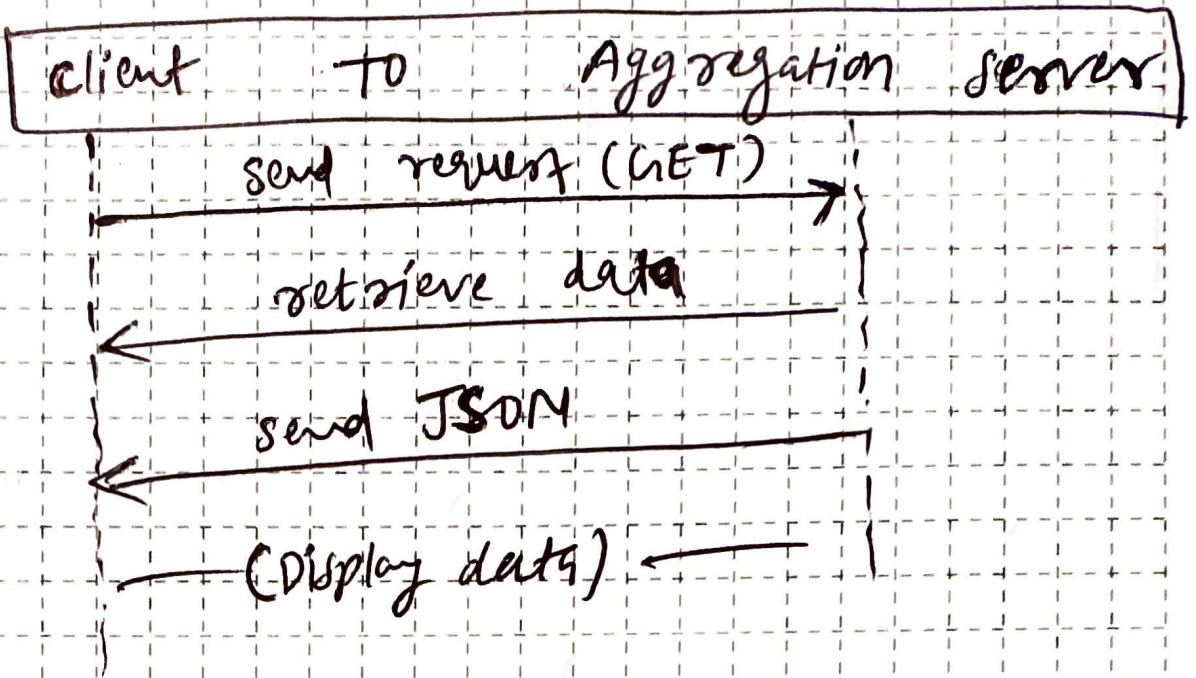 Client to Aggregation server
send request (GET)
retrieve data
send JSON
(Display data)